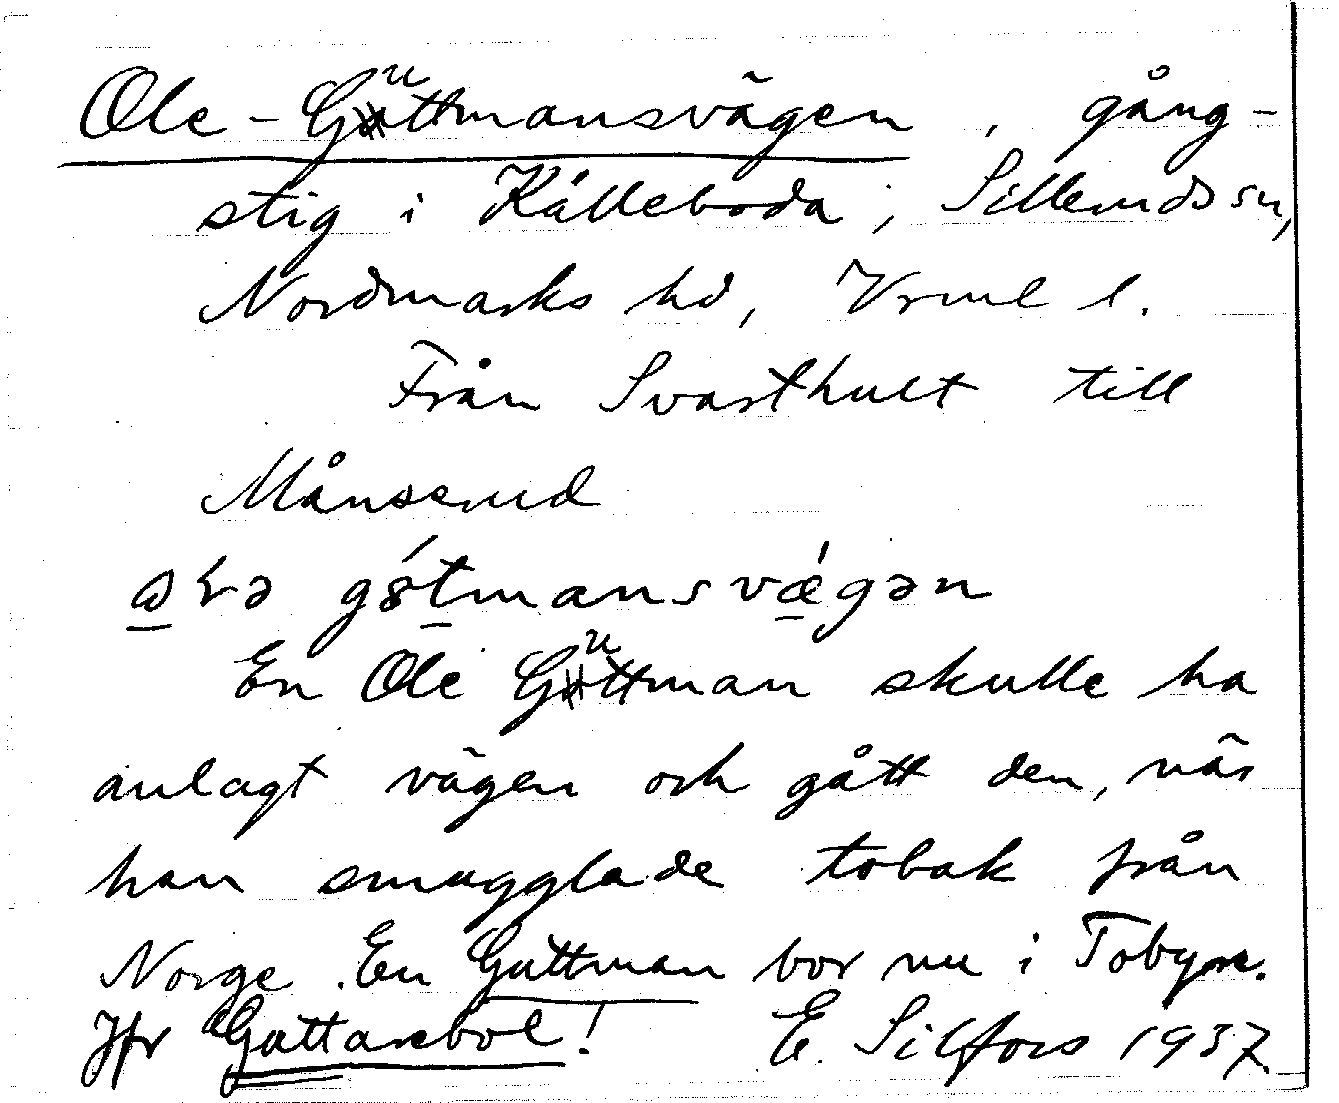 Ole-Guttmansvägen, gång-
stig i Källeboda, Sillerudssn,
Nordmarks hd, Vrml l.
Från Svarthult till
Månserud
En Ole Guttman skulle ha
anlagt vägen och gått den, när
han smugglade tobak från
Norge. En Guttman bor nu i Tobyn.
Jfr Guttarebol! E. Silfors 1937.